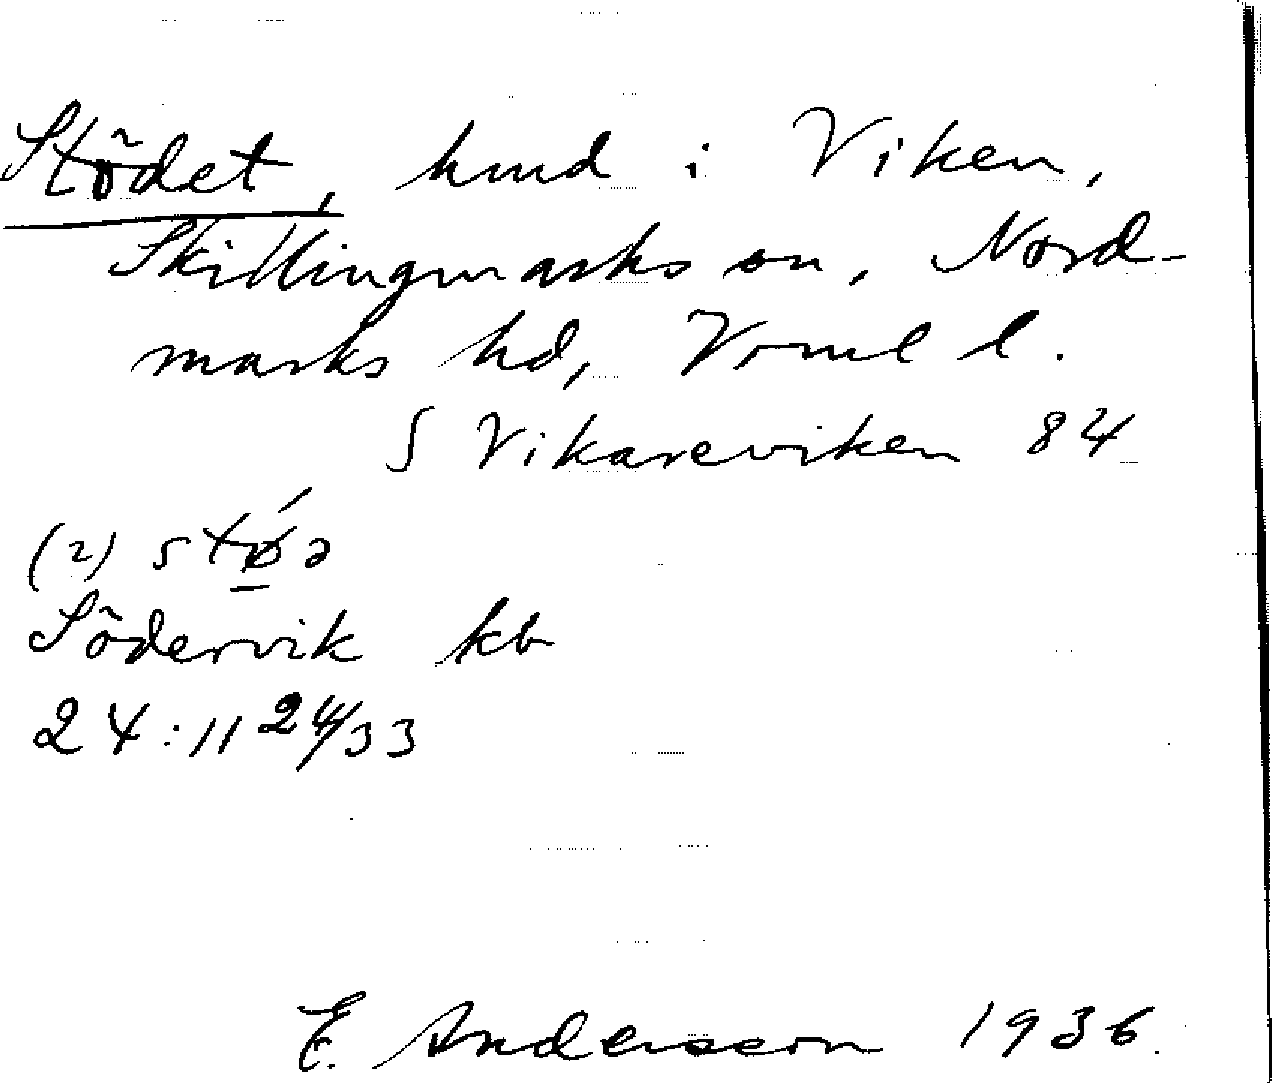 Stödet, hmd i Viken,
Skillingmarks sn, Nord-
marks hd, Vrml l.
S Vikareviken 84
(2) stǿ̱ə
Södervik kb
24:11 24/33
E. Andersson 1936.